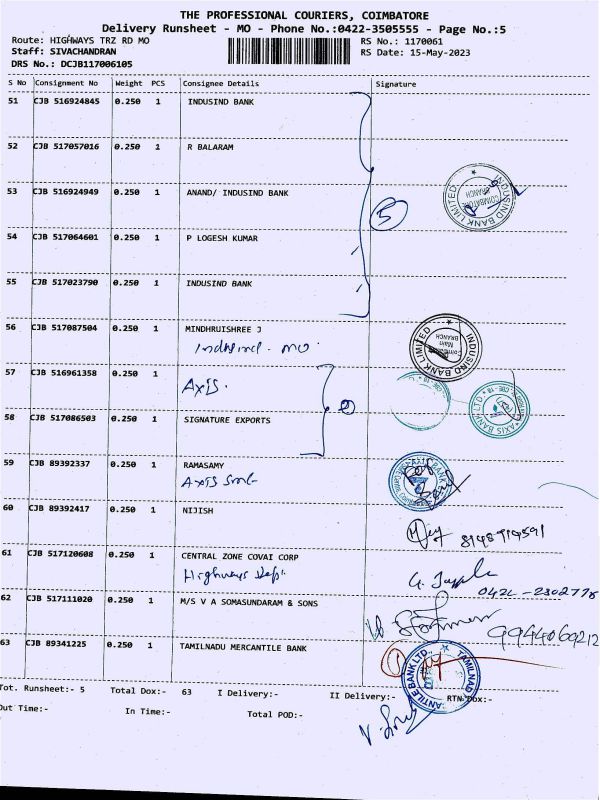 THE PROFESSIONAL COURIERS, COIMBATORE
Delivery Runsheet - MO - Phone No.:0422-3505555 - Page No.:5
Route: HIGHWAYS TRZ RD MO
RS No.: 1170061
Staff: SIVACHANDRAN
RS Date: 15-May-2023
DRS No.: DCJB117006105
S No Consignment No Weight PCS Consignee Details Signature
51 CJB 516924845 0.250 1 INDUSIND BANK
52 CJB 517057016 0.250 1 R BALARAM
53 CJB 516924949 0.250 1 ANAND/ INDUSIND BANK
INDUSIND BANK LIMITED
COIMBATORE
BRANCH
5
54 CJB 517064601 0.250 1 P LOGESH KUMAR
55 CJB 517023790 0.250 1 INDUSIND BANK
56 CJB 517087504 0.250 1 MINDHRUISHREE J
Indusind. MO.
INDUSIND BANK LIMITED
Coimbatore
Main
BRANCH
57 CJB 516961358 0.250 1
AXIS.
2
AXIS BANK LTD
58 CJB 517086503 0.250 1 SIGNATURE EXPORTS
59 CJB 89392337 0.250 1 RAMASAMY
AXIS
AXIS BANK
60 CJB 89392417 0.250 1 NIJISH
8148914591
61 CJB 517120608 0.250 1 CENTRAL ZONE COVAI CORP
Highways
0422-2302776
62 CJB 517111020 0.250 1 M/S V A SOMASUNDARAM & SONS
9944069212
63 CJB 89341225 0.250 1 TAMILNADU MERCANTILE BANK
1
TAMILNAD
ANTILE BANK LTD.
Tot. Runsheet:- 5 Total Dox:- 63 I Delivery:- II Delivery:- RTN Dox:-
Out Time:- In Time:- Total POD:-